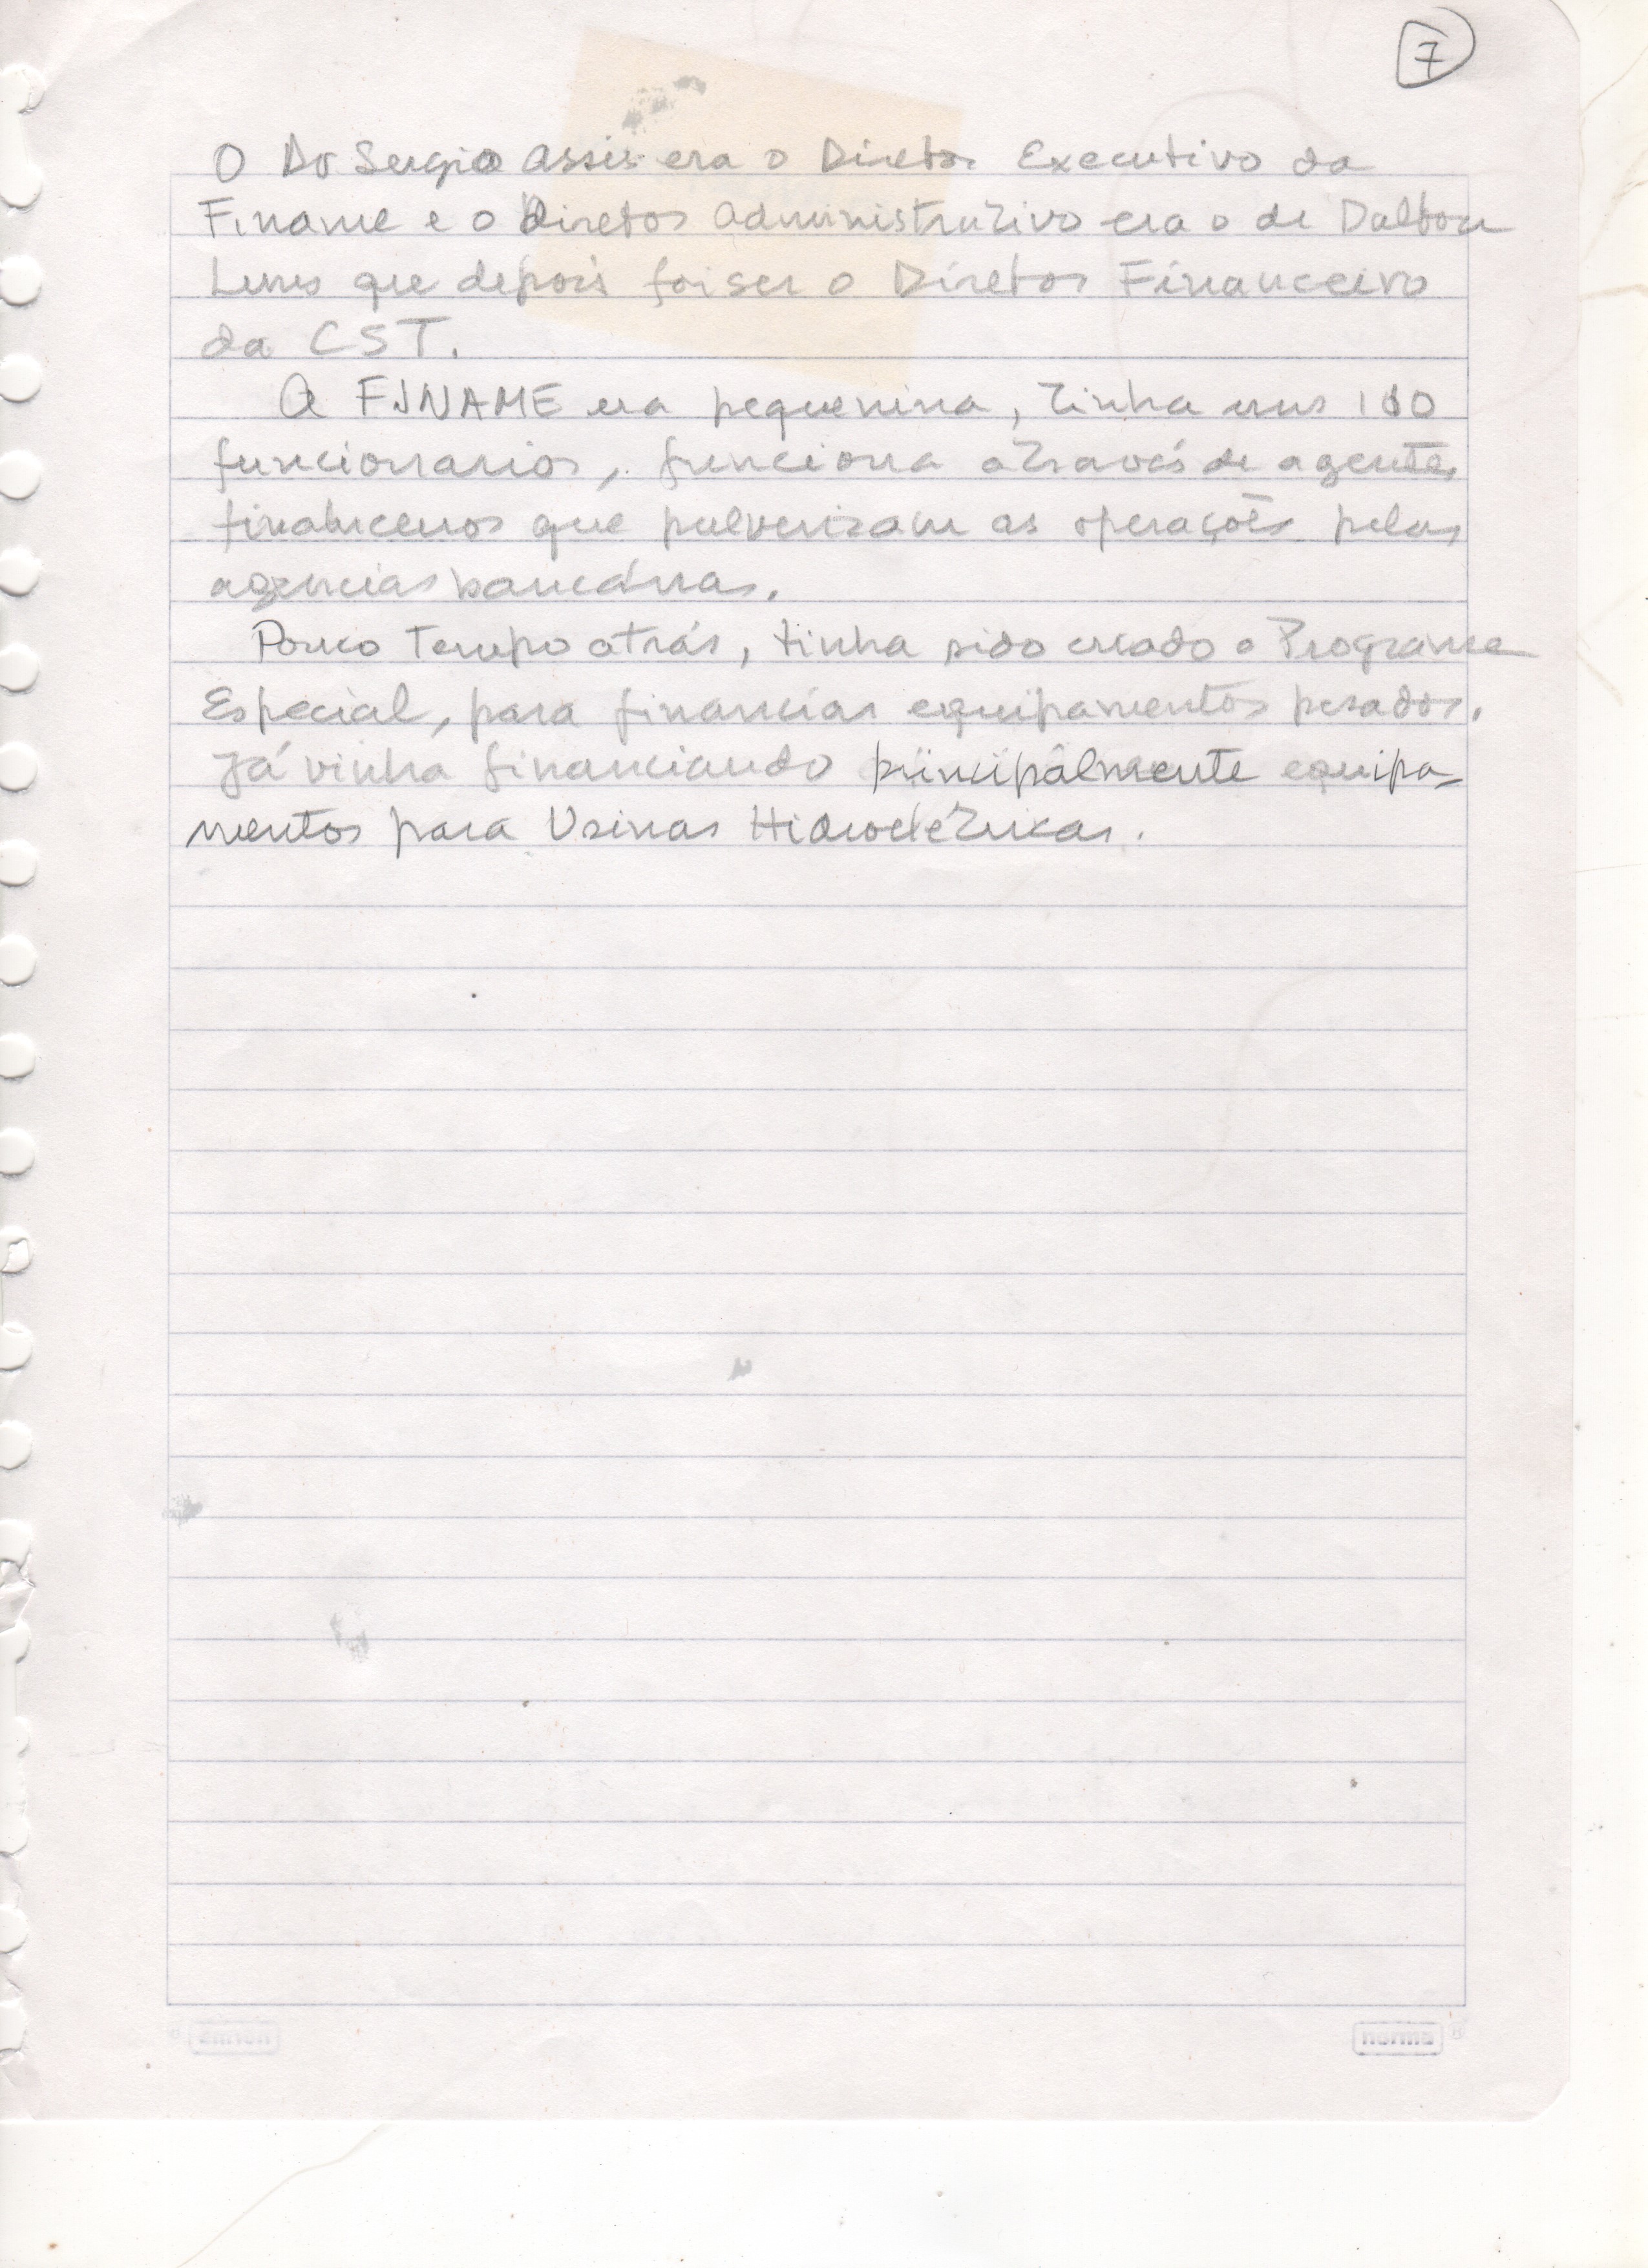 7
O Dr Sergio Assis era o Diretor Executivo da
Finame e o Diretor Administrativo era o de Dalton
que depois foi ser o Diretor Financeiro
da CST.
A FINAME era pequenina, tinha uns 100
funcionarios, funciona através de agentes
financeiros que pulverizam as operações pelas
agencias bancárias.
Pouco Tempo atrás, tinha sido criado o Programa
Especial, para financiar equipamentos pesados.
Já vinha financiando principalmente equipa-
mentos para Usinas Hidroelétricas.
norma